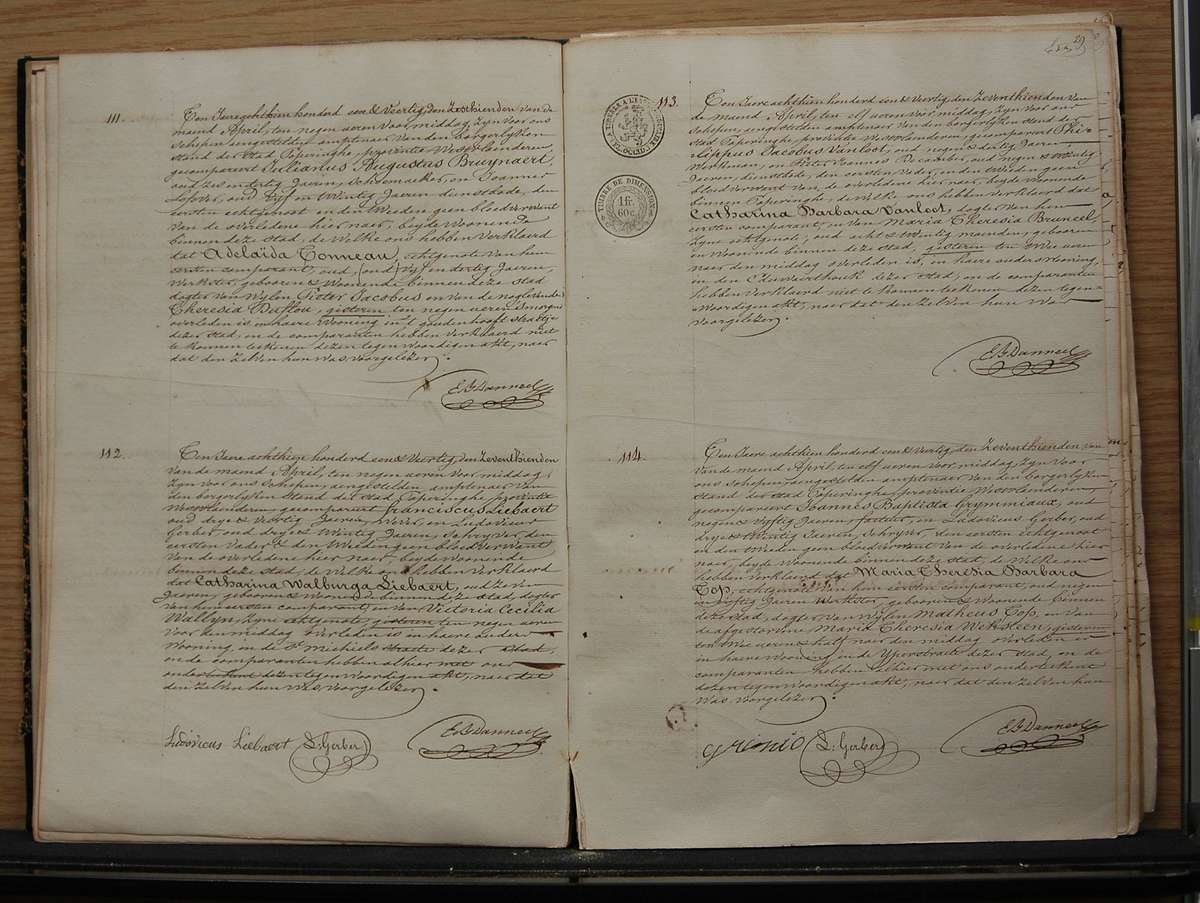 111.
Ten Jaere achthien honderd een & Veertig, den Zesthienden van de
maand April, ten negen ueren Voor middag, Zyn Voor ons
Schepen aengestelden amptenaer Van den borgerlyken
Stand der Stad Poperinghe, provintie Westvlaenderen
gecompareert Julianus Augustus Bruynaert,
oud Zes en dertig Jaeren, Schoenmaker, en Joannes
oud Vyf en twintig Jaeren dienstbode, den
eersten echtgenoot en den tweeden geen bloedverwant
Van de overledene hier naer, beyde Woonende
binnen deze Stad, de Welke ons hebben Verklaerd
dat Adelaïda Tonneau, echtgenote Van hem
eersten comparant, oud (oud) Vyf en dertig Jaeren,
Werkster, geboren & Woonende binnen deze Stad
dogter Van Wylen Pieter Jacobus en Van de nog levende
Theresia Baflou, gisteren ten negen ueren S'morgens
overleden is in haere Woning in 't goudenhooft straetje
dezer Stad, en de comparanten hebben Verklaerd niet
te konnen teekenen dezen tegenwoordigen akt, naer
dat den Zelven hun Was Voorgelezen.
E. B. Danneel
112.
Ten Jaere achthien honderd een & Veertig, den Zeventhienden
Van de maand April, ten negen ueren Voor middag,
Zyn Voor ons Schepen, aengestelden amptenaer Van
den borgerlyken Stand der Stad Poperinghe, provintie
Westvlaenderen gecompareert franciscus Liebaert
oud drye & Veertig Jaeren, Wever, en Ludovicus
Gerber, oud drye & twintig Jaeren, Schryver, den
eersten Vader & den Tweeden geen bloedverwant
Van de overledene hier naer, beyde Woonende
binnen deze Stad, de Welke ons hebben Verklaerd
dat Catharina Walburga Liebaert, oud Zeven
Jaeren, geboren & Woonende binnen deze Stad, dogter
Van hem eersten comparant, en Van Victoria Cecilia
Wallyn, Zyne echtgenote, gisteren ten negen ueren
Voor den middag overleden is in haere ouders
Wooning en de St Michiels straete dezer Stad,
en de comparanten hebben alhier met ons
onder dezen tegenwoordigen akt, naer dat
den Zelven hun Was Voorgelezen.
Ludovicus Liebaert L: Gerber E. B. Danneel
29
TIMBRE DE DIMENSION
1 fr.
60 c.
113.
Ten Jaere achthien honderd een & Veertig, den Zeventhienden Van
de maand April, ten elf ueren Voor middag, Zyn Voor ons
Schepen, aengestelden amptenaer Van den borgerlyken Stand der
Stad Poperinghe, provintie Westvlaenderen, gecompareert Phi-
lippus Jacobus Vanloot, oud negen & dertig Jaeren,
Werkman, en Pieter Joannes Decamber, oud negen & twintig
Jaeren, dienstbode, den eersten Vader, en den tweeden geen
bloedverwant Van de overledene hier naer, beyde Woonende
binnen Poperinghe, de Welke ons hebben Verklaerd dat
Catharina Barbara Vanloot, dogter Van hem
eersten comparant, en Van Maria Theresia Bruneel
Zyne echtgenote, oud acht & twintig maenden, geboren
en Woonende binnen deze Stad, gisteren ten twee ueren
naer den middag overleden is, in haere ouders Wooning,
en den Edewaerthoek dezer Stad, en de comparanten
hebben Verklaerd niet te konnen teekenen dezen tegen-
Woordigen akt, naer dat den Zelven hun Was
Voorgelezen.
E. B. Danneel
114.
Ten Jaere achthien honderd een & Veertig, den Zeventhienden Van
Van de maand April, ten elf ueren Voor middag, Zyn Voor
ons Schepen aengestelden amptenaer Van den borgerlyken
Stand der Stad Poperinghe, provintie Westvlaenderen
gecompareert Joannes Baptista Grymmiaux, oud
negen & Vyftig Jaeren, en Ludovicus Gerber, oud
drye & twintig Jaeren, Schryver, den eersten echtgenoot
en den tweeden geen bloedverwant Van de overledene hier
naer, beyde Woonende binnen deze Stad, de Welke ons
hebben Verklaerd dat Maria Theresia Barbara
Top, echtgenote Van hem eersten comparant, oud negen
en Vyftig Jaeren Werkster, geboren & Woonende binnen
deze Stad, dogter Van Wylen Matheus Top, en Van
de afgestorvene Maria Theresia Weksteen, gisteren
ten twee ueren & half naer den middag overleden is
in haere Wooning, en de Yperstraete dezer Stad, en de
comparanten hebben alhier met ons onderteekent
dezen tegenwoordigen akt, naer dat den Zelven hun
Was Voorgelezen.
L: Gerber E. B. Danneel